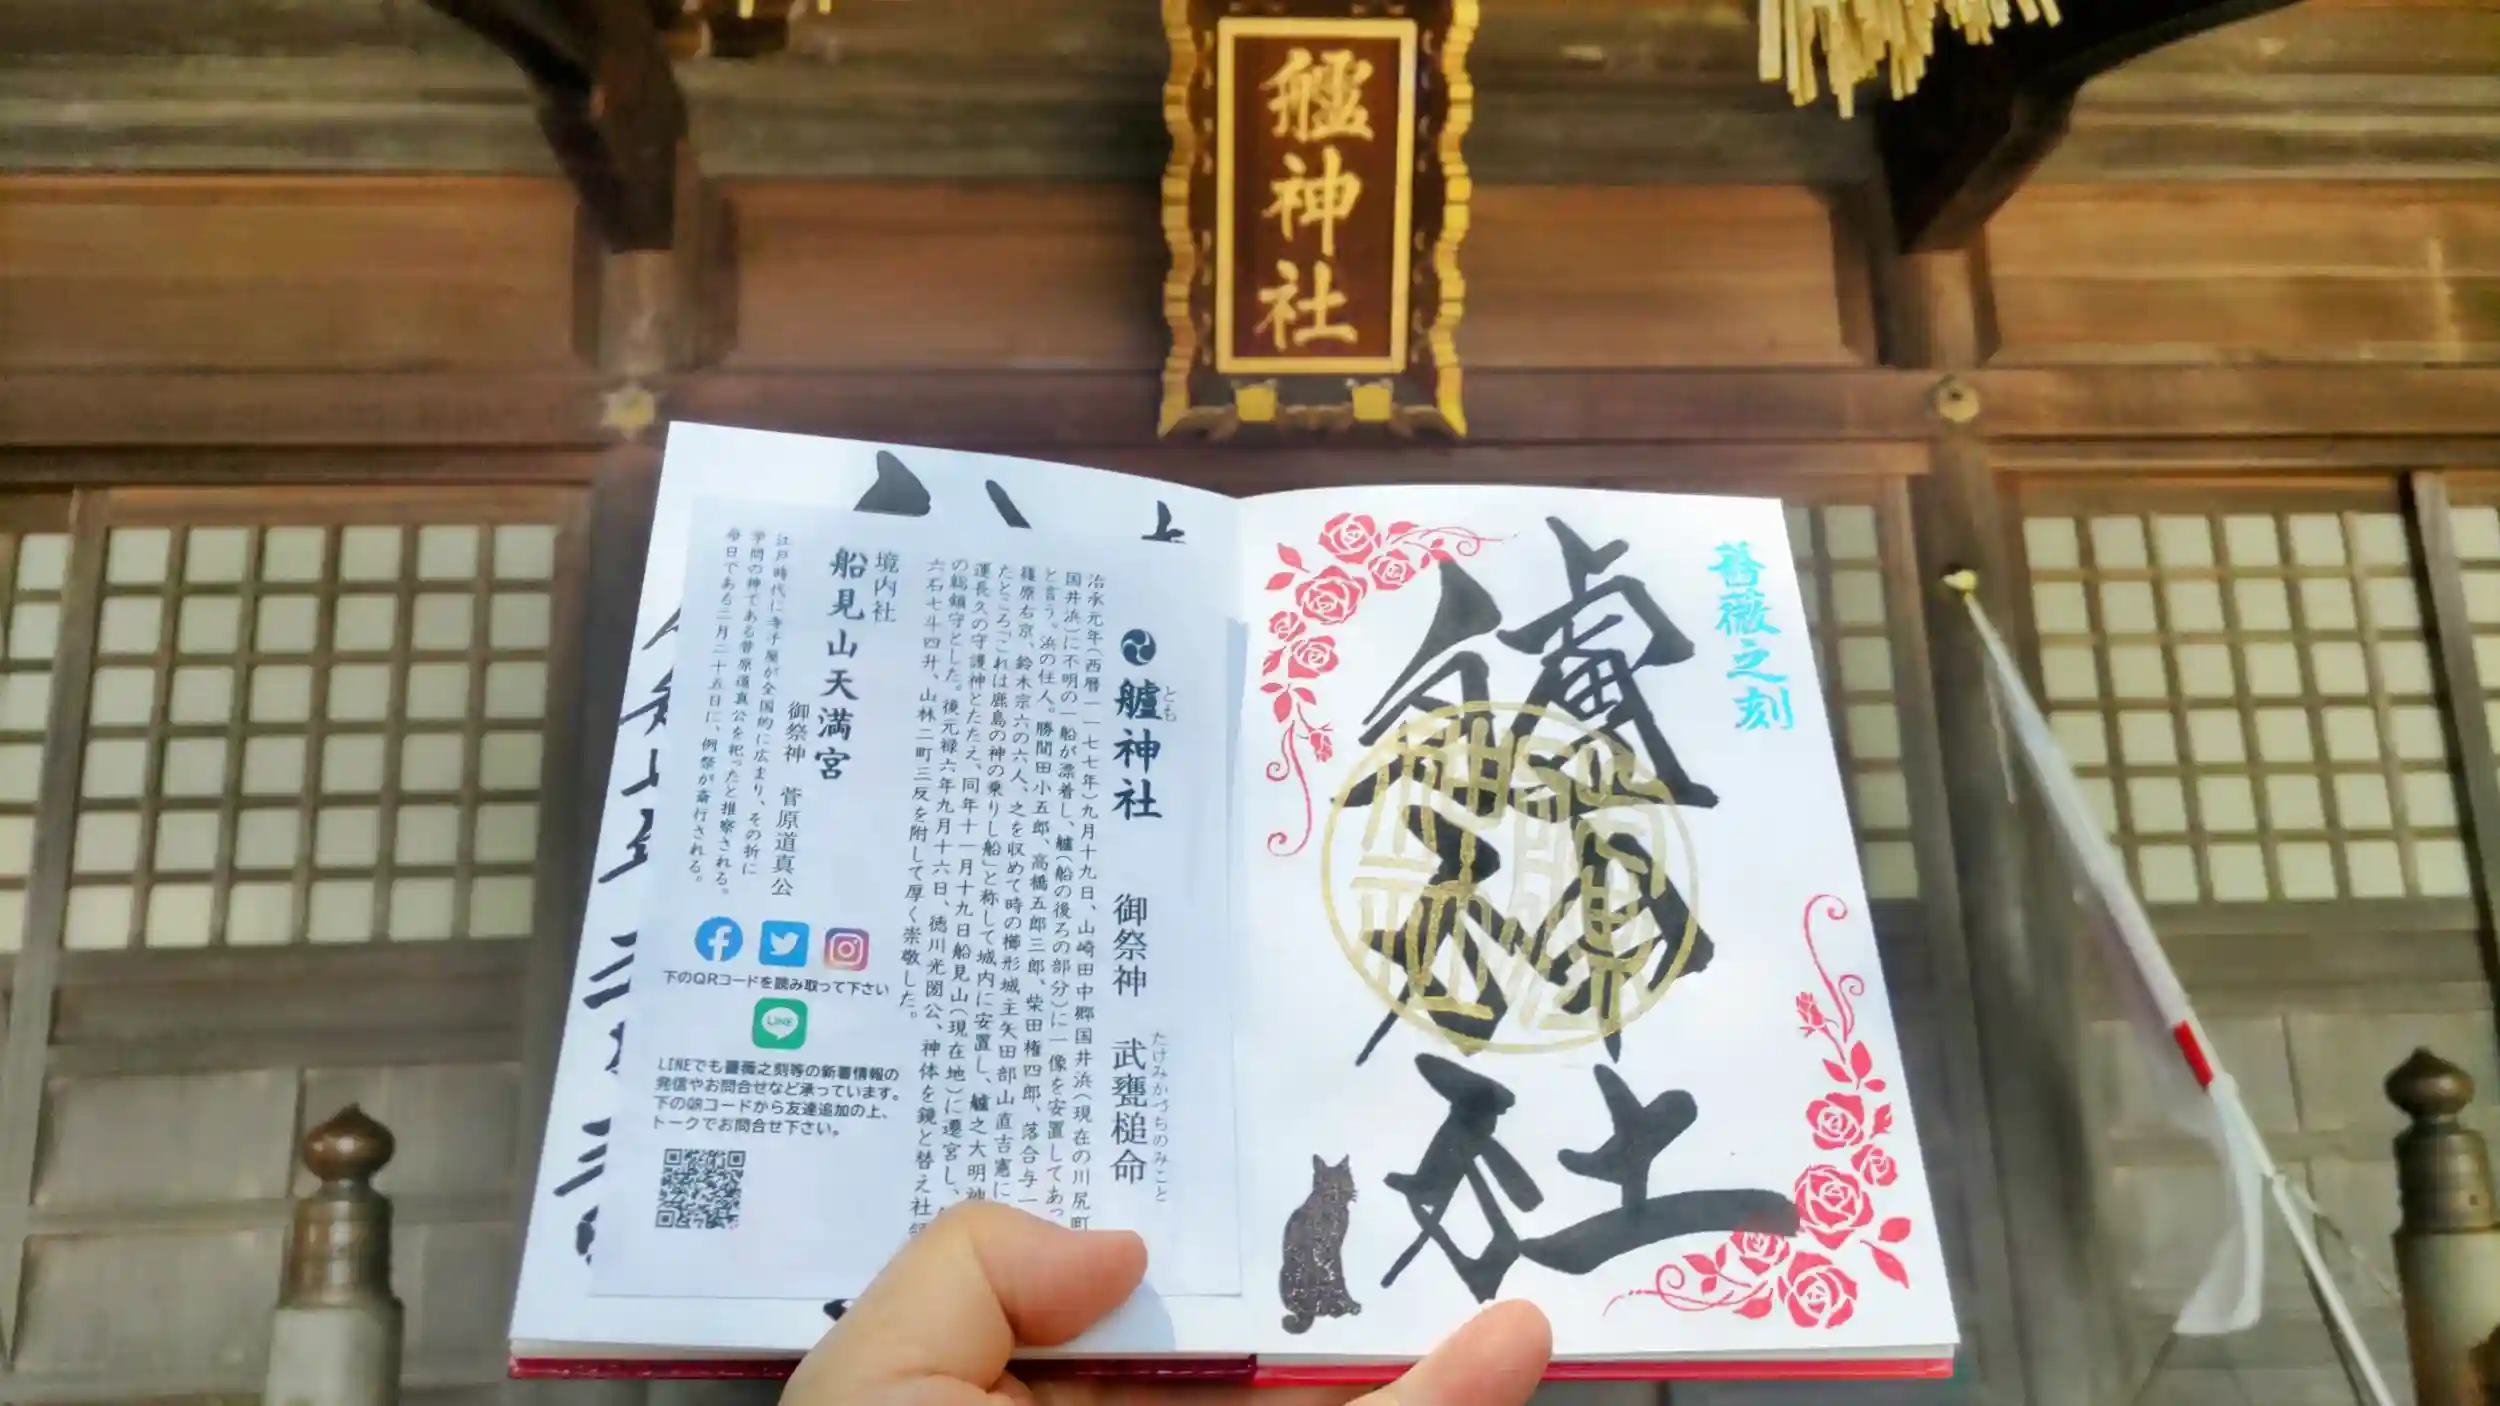 艫神社
薔薇之刻
艫神社
とも
艫神社 御祭神 武甕槌命
たけみかづちのみこと
治承元年(西暦一一七七年)九月十九日、山崎田中郷国井浜(現在の川尻町
国井浜)に不明の一船が漂着し、艫(船の後ろの部分)に一像を安置してあっ
と言う。浜の住人。勝間田小五郎、高橋五郎三郎、柴田権四郎、落合与一
篠原右京、鈴木宗六の六人、之を収めて時の櫛形城主矢田部山直吉憲に
たところ「これは鹿島の神の乗りし船」と称して城内に安置し、艫之大明神
運長久の守護神とたたえ、同年十一月十九日船見山(現在地)に遷宮し、
の総鎮守とした。後元禄六年九月十六日、徳川光圀公、神体を鏡と替え社領
六石七斗四升、山林二町三反を附して厚く崇敬した。
境内社
船見山天満宮
御祭神 菅原道真公
江戸時代に寺子屋が全国的に広まり、その折に
学問の神である菅原道真公を祀ったと推察される。
毎日である二月二十五日に、例祭が斎行される。
下のQRコードを読み取って下さい
LINE
LINEでも薔薇之刻等の新着情報の
発信やお問合せなど承っています。
下のQRコードから友達追加の上、
トークでお問合せ下さい。